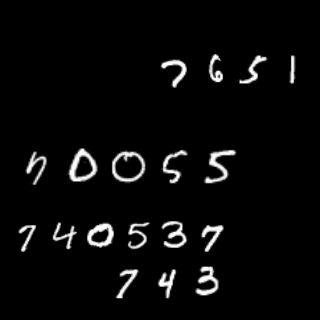 7651
70055
740537
743